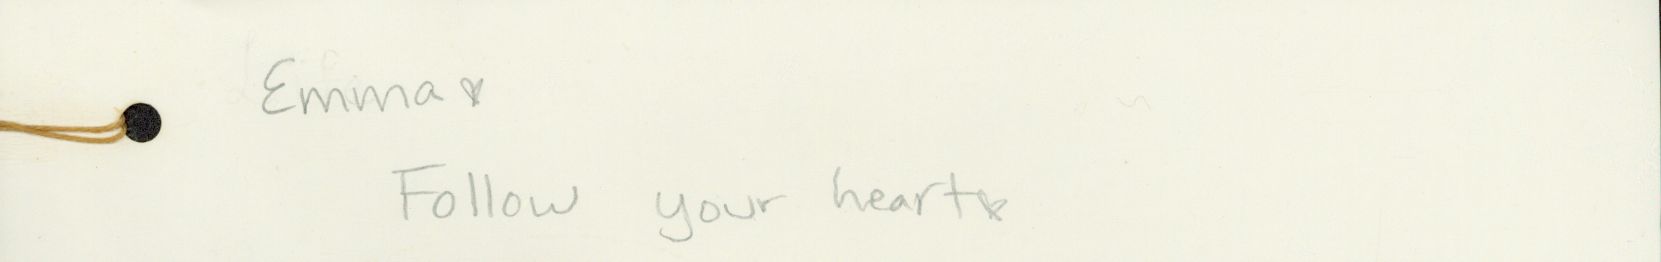 Emma ♡
Follow your heart ♡